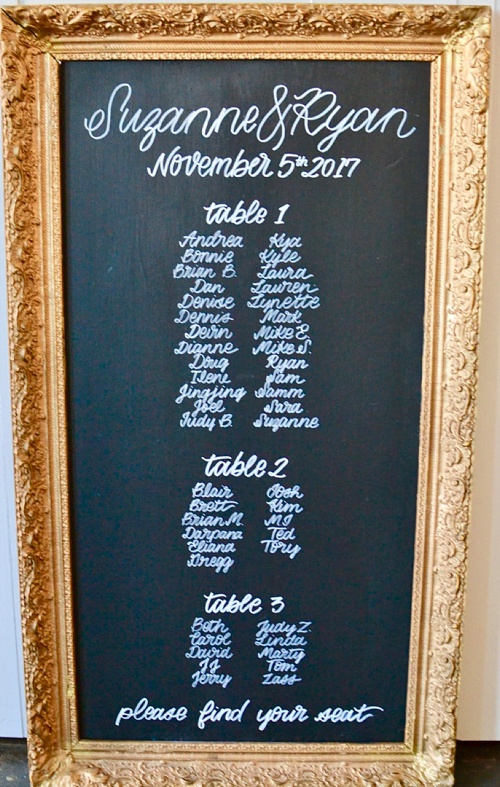 Suzanne & Ryan
November 5th 2017
table 1
Andrea Kya
Bonnie Kyle
Brian B. Laura
Dan Lauren
Denise Lynette
Dennis Mark
Devin Mike E.
Dianne Mike S.
Doug Ryan
Ilene Sam
Jingjing Samm
Joel Sara
Judy B. Suzanne
table 2
Blair Josh
Brett Kim
Brian M. MJ
Darpana Ted
Eliana Tory
Gregg
table 3
Beth Judy Z.
Carol Linda
David Marty
JJ Tom
Jerry Zass
please find your seat